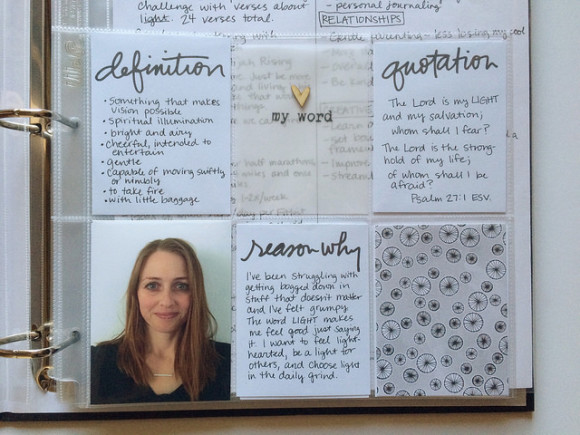 challenge with verses about
light. 24 verses total.
- personal journaling
RELATIONSHIPS
- Gentle parenting - less losing my cool
definition
• Something that makes
vision possible
• Spiritual illumination
• bright and airy
• Cheerful, intended to
entertain
• gentle
• Capable of moving swiftly
or nimbly
• to take fire
• with little baggage
my word
quotation
The Lord is my LIGHT
and my salvation;
whom shall I fear?
The Lord is the strong-
hold of my life;
of whom shall I be
afraid?
Psalm 27:1 ESV.
reason why
I've been struggling with
getting bogged down in
stuff that doesn't matter
and I've felt grumpy.
The word LIGHT makes
me feel good just saying
it. I want to feel light-
hearted, be a light for
others, and choose light
in the daily grind.